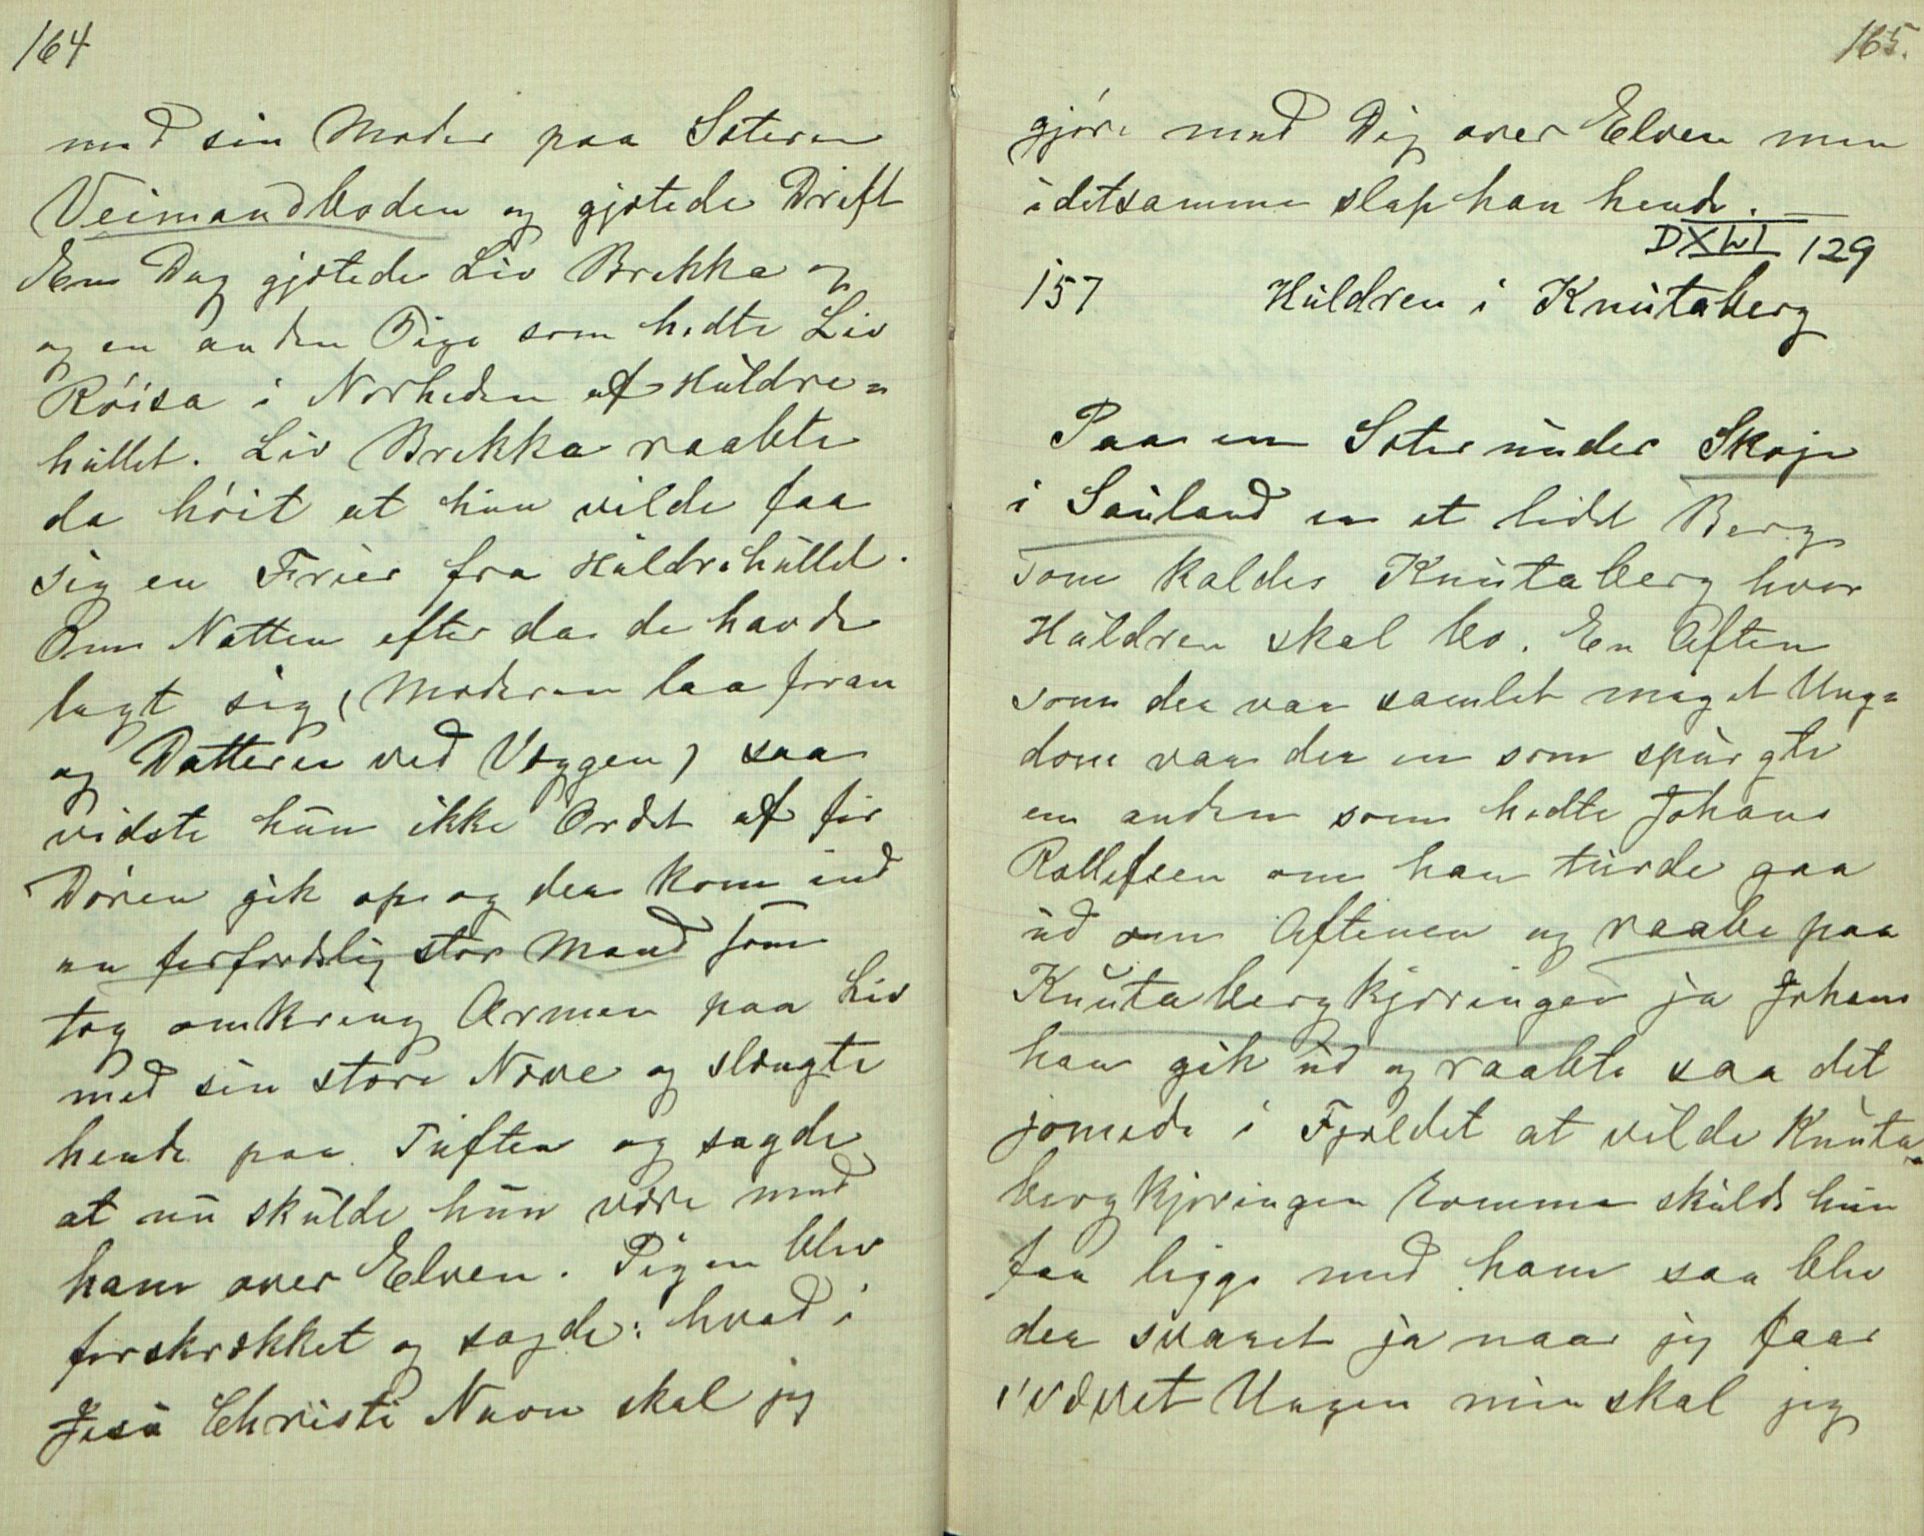 164
med sin Moder paa Sæteren
Veimandboden og gjætede Drift
Een Dag gjætede Liv Brekka og
og en anden Pige som hedte Liv
Röisa i Nærheden af Huldre=
hullet. Liv Brekka raabte
da höit at hun vilde faa
sig en Frier fra Huldrehullet.
Om Natten efter da de havde
lagt sig (Moderen laa foran
og Datteren ved Væggen) saa
vidste hun ikke Ordet af för
Dören gik op og der kom ind
en forfærdelig stor Mand som
tog omkring Armen paa Liv
med sin store Næve og slængte
hende paa Tuften og sagde
at nu skulde hun være med
ham over Elven. Pigen blev
forskrækket og sagde: hvad i
Jesu Christi Navn skal jeg
165.
gjöre med Dig over Elven men
idetsamme slap han hende.
DXLVI 129
157 Huldren i Knutaberg
Paa en Sæter under Skoje
i Sauland er et lidet Berg
som kaldes Knutaberg hvor
Huldren skal bo. En Aften
som der var samlet meget Ung=
dom var der en som spurgte
en anden som hedte Johans
Rollefsen om han turde gaa
ud om Aftenen og raabe paa
Knutabergkjæringen ja Johans
han gik ud og raabte saa det
jomede i Fjeldet at vilde Knuta=
bergkjæringen komme skulde hun
faa ligge med ham saa blev
der svaret ja naar jeg faar
svævet Ungen min skal jeg